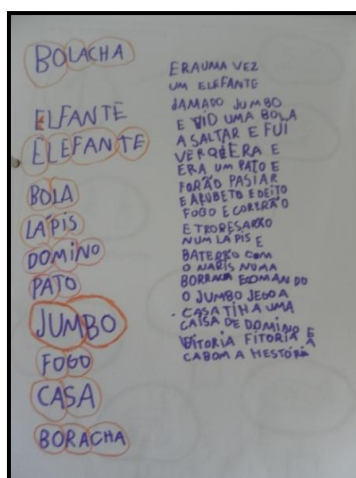 BOLACHA
ELFANTE
ELEFANTE
BOLA
LÁPIS
DOMINO
PATO
JUMBO
FOGO
CASA
BORACHA
ERAUMA VEZ
UM ELEFANTE
JAMADO JUMBO
E VIO UMA BOLA
A SALTAR E FUI
VER QUERA E
ERA UM PATO E
FORÃO PASIAR
E AROBETO EDEITO
FOGO E CORERÃO
E TROPESARÃO
NUM LAPIS E
BATERÃO COM
O NARIS NUMA
BORRACA
O JUMBO JEGOA
CASA TIHA UMA
CAISA DE DOMINO
VITORIA FITORIA E
CABOM A HESTÓRIA